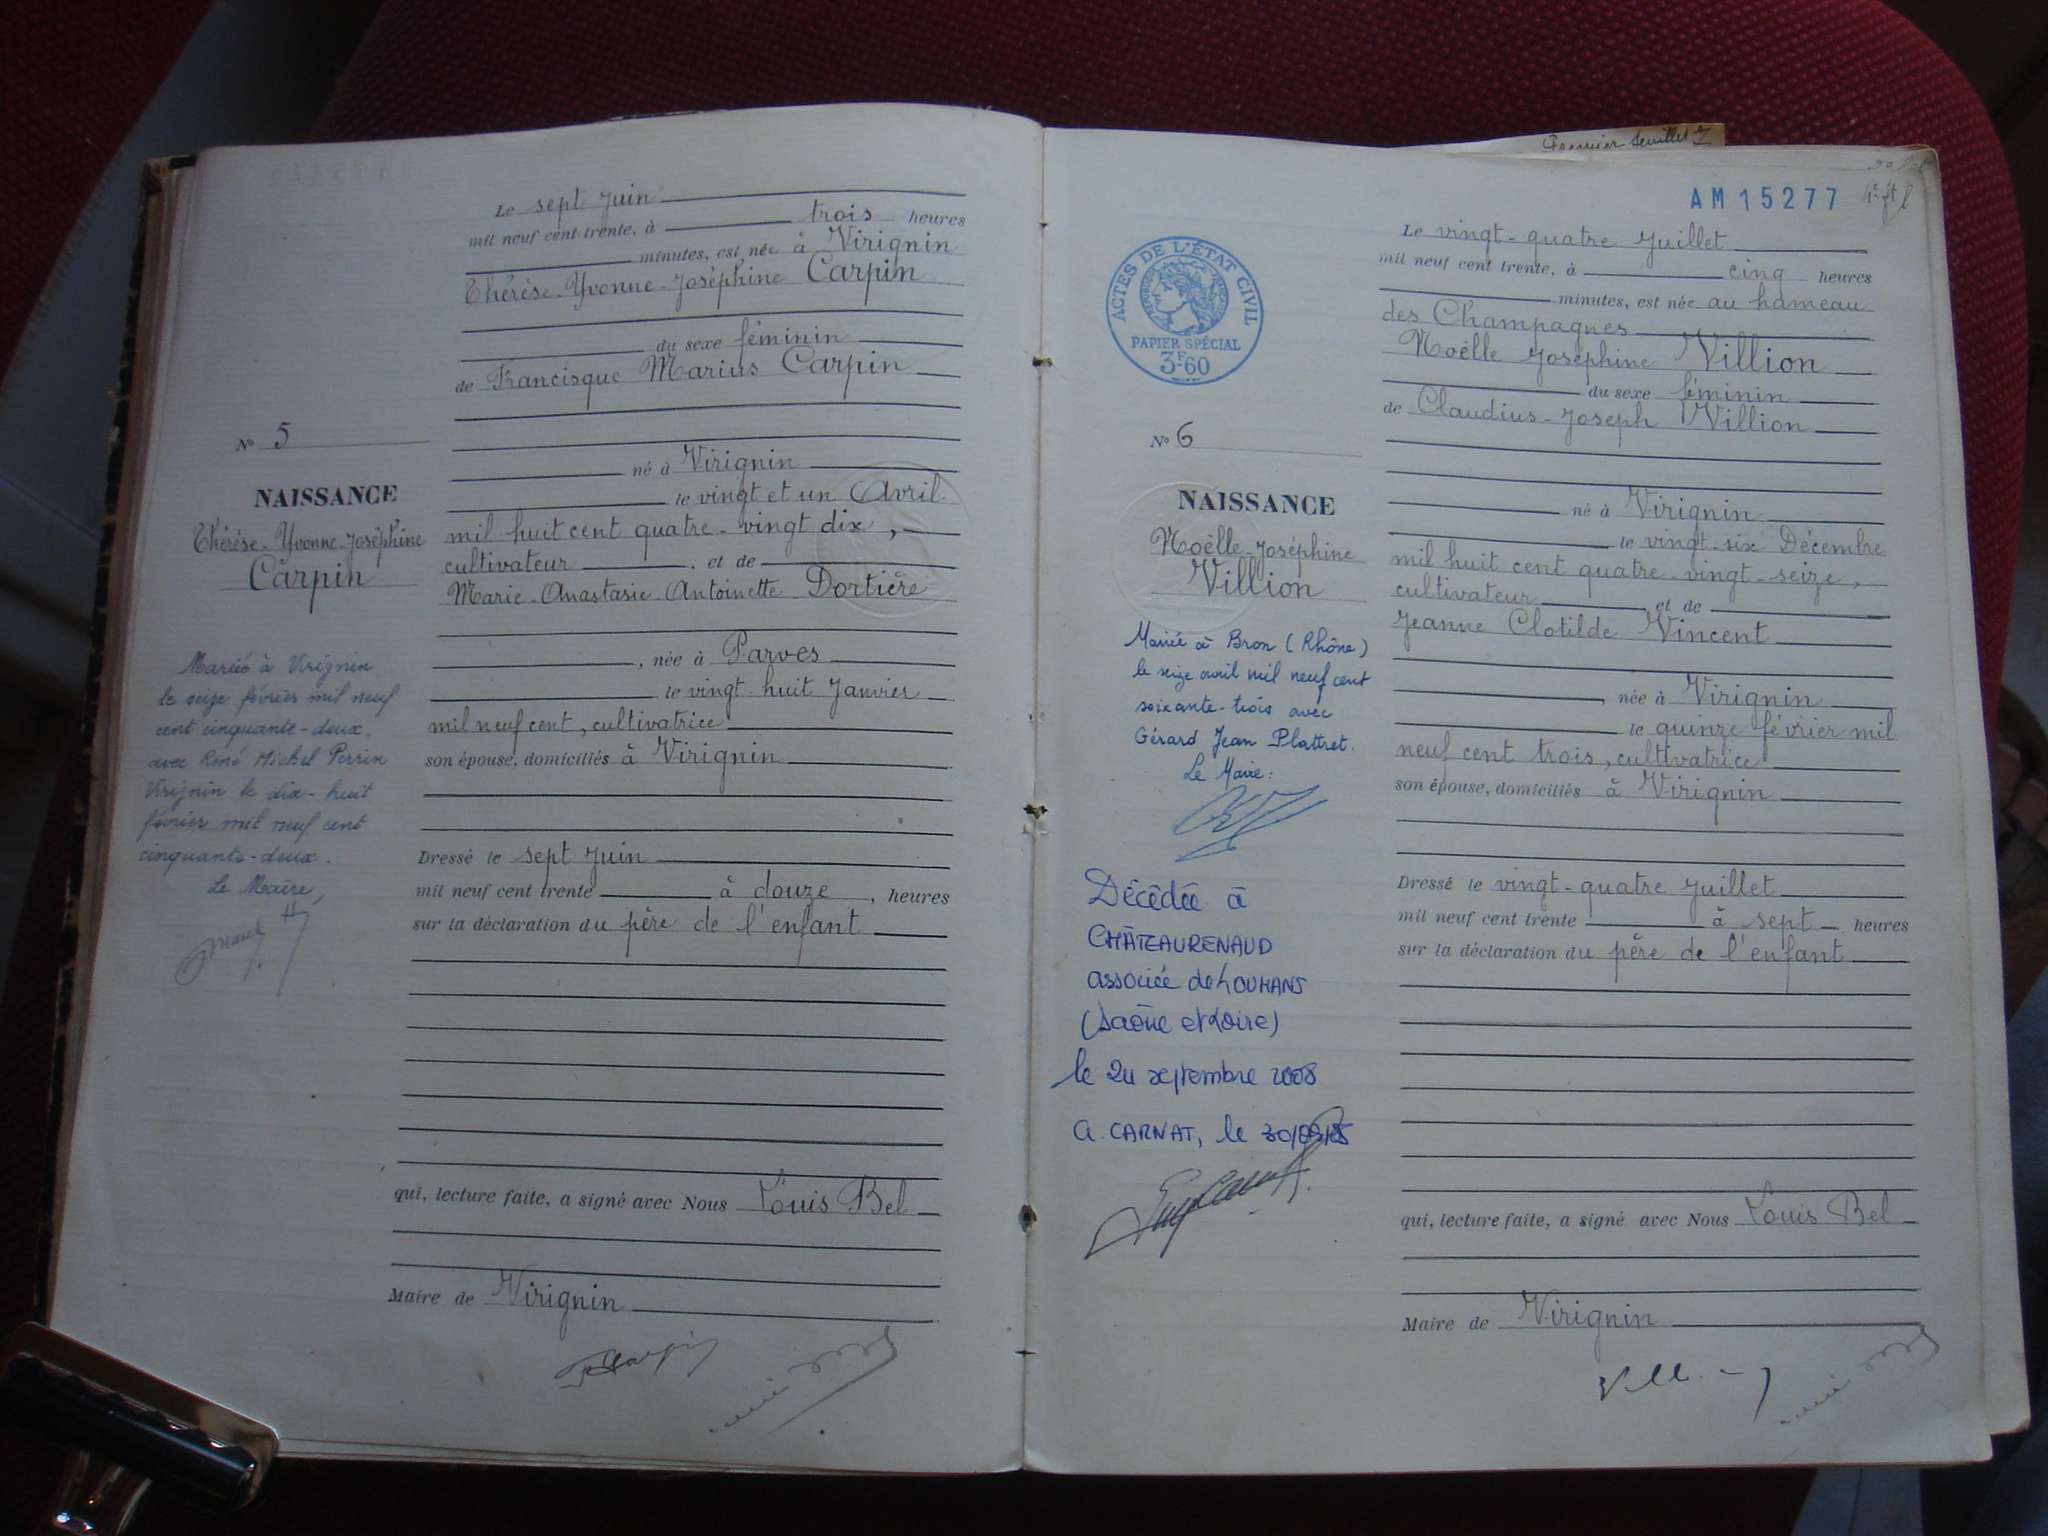 Le sept Juin
mil neuf cent trente, à trois heures
minutes, est née à Virignin
Thérèse-Yvonne-Joséphine Carpin
du sexe féminin
de Francisque Marius Carpin
né à Virignin
le vingt et un Avril
mil huit cent quatre-vingt dix,
cultivateur, et de
Marie-Anastasie-Antoinette Dortière
, née à Parves
le vingt-huit Janvier
mil neuf cent, cultivatrice
son épouse, domiciliés à Virignin
Dressé le sept Juin
mil neuf cent trente à douze, heures
sur la déclaration du père de l'enfant
qui, lecture faite, a signé avec Nous Louis Bel
Maire de Virignin
N° 5
NAISSANCE
Thérèse-Yvonne-Joséphine
Carpin
Mariée à Virignin
le seize février mil neuf
cent cinquante-deux,
avec René Michel Perrin
Virignin le dix-huit
février mil neuf cent
cinquante-deux.
Le Maire,
Premier feuillet
AM 15277
ACTES DE L'ÉTAT CIVIL
PAPIER SPÉCIAL
3F.60
N° 6
NAISSANCE
Noëlle-Joséphine
Villion
Mariée à Bron (Rhône)
le seize avril mil neuf cent
soixante-trois avec
Gérard Jean Plattret.
Le Maire:
Décédée à
CHÂTEAURENAUD
associée de LOUHANS
(Saône et Loire)
le 24 septembre 2008
A. CARNAT, le
Le vingt-quatre Juillet
mil neuf cent trente, à cinq heures
minutes, est née au hameau
des Champagnes
Noëlle Joséphine Villion
du sexe féminin
de Claudius-Joseph Villion
né à Virignin
le vingt-six Décembre
mil huit cent quatre-vingt-seize,
cultivateur et de
Jeanne Clotilde Vincent
, née à Virignin
le quinze février mil
neuf cent trois, cultivatrice
son épouse, domiciliés à Virignin
Dressé le vingt-quatre Juillet
mil neuf cent trente à sept heures
sur la déclaration du père de l'enfant
qui, lecture faite, a signé avec Nous Louis Bel
Maire de Virignin